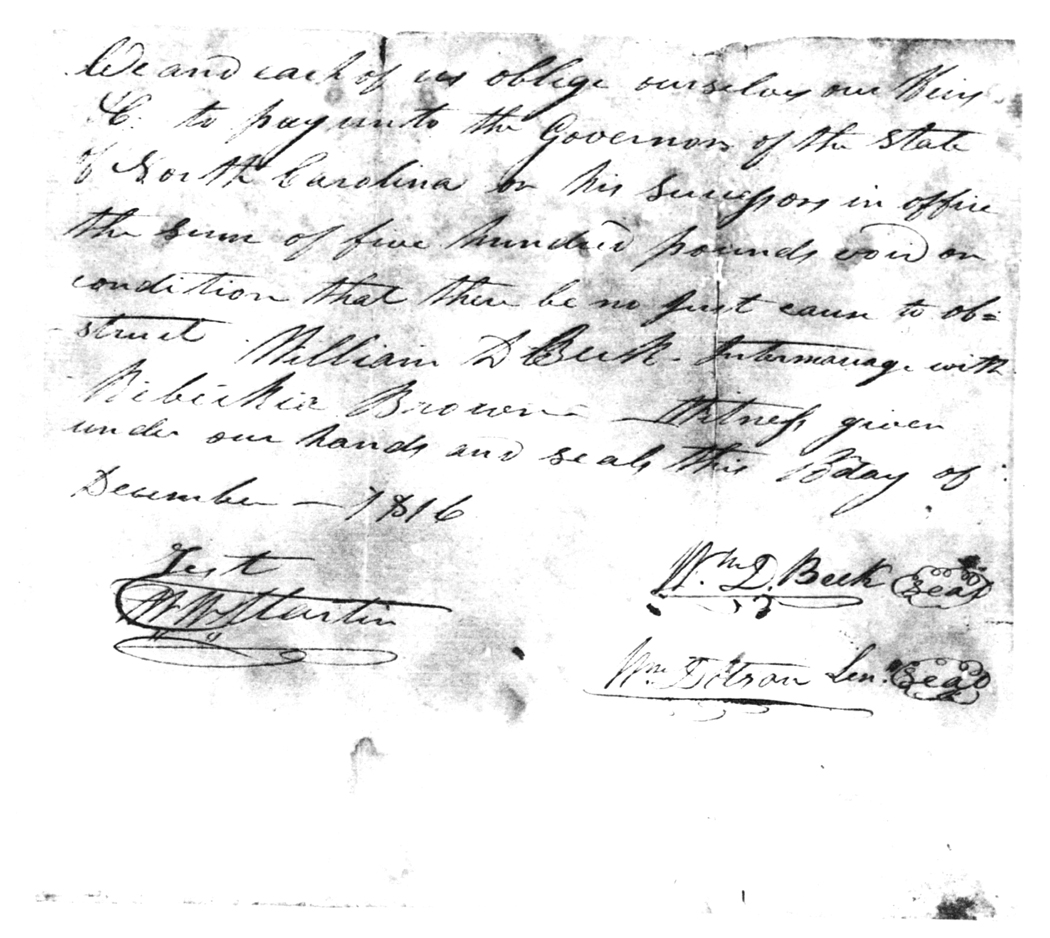 We and each of us oblige ourselves our Heirs
&C. to pay unto the Governor of the State
of North Carolina or his successors in office
the sum of five hundred pounds void on
condition that there be no just cause to ob=
struct William D Beek Intermarriage with
Brown Witness given
under our hands and seals this day of
December — 1816
Test
W W Martin
Wm D. Beek Seal
Wm Dotson Sen. Seal